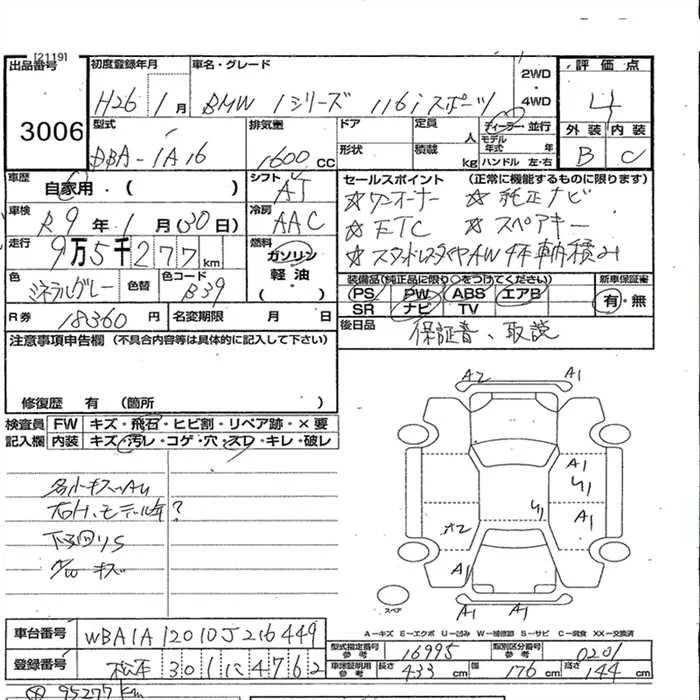 [2119]
出品番号
3006
初度登録年月
H26 1月
車名・グレード
BMW 1シリーズ 116i スポーツ
2WD
・
4WD
評価点
4
外装 内装
B C
型式
DBA-1A16
排気量
1600cc
ドア
形状
定員 人
積載 kg
ディーラー・並行
モデル年式 年
ハンドル 左・右
車歴
自家用・( )
シフト
AT
車検
R9年1月(30日)
冷房
AAC
走行
9万5千277km
燃料
ガソリン
軽油
( )
色
ミネラルグレー
色替
色コード
B39
セールスポイント (正常に機能するものに限ります)
☆ワンオーナー ☆純正ナビ
☆ETC ☆スペアキー
☆スタッドレスタイヤAW4本車輌積み
装備品(純正品に限り○をつけてください)
PS PW ABS エアB
SR ナビ TV
新車保証書
有・無
R券 18360円
名変期限 月 日
後日品
保証書、取説
注意事項申告欄 (不具合内容等は具体的に記入して下さい)
修復歴 有 (箇所 )
検査員記入欄
FW キズ・飛石・ヒビ割・リペア跡・×要
内装 キズ・汚レ・コゲ・穴・スレ・キレ・破レ
A2 A1
A1
A1
A1
A1 A1
スペア
A-キズ E-エクボ U-凹み W-補修跡 S-サビ C-腐食 XX-交換済
車台番号
WBA1A12010J216449
登録番号
松本 301 に 4762
型式指定番号 参考
16995
類別区分番号 参考
0201
車庫証明用 参考
長さ 433cm 幅 176cm 高さ 144cm
95277km